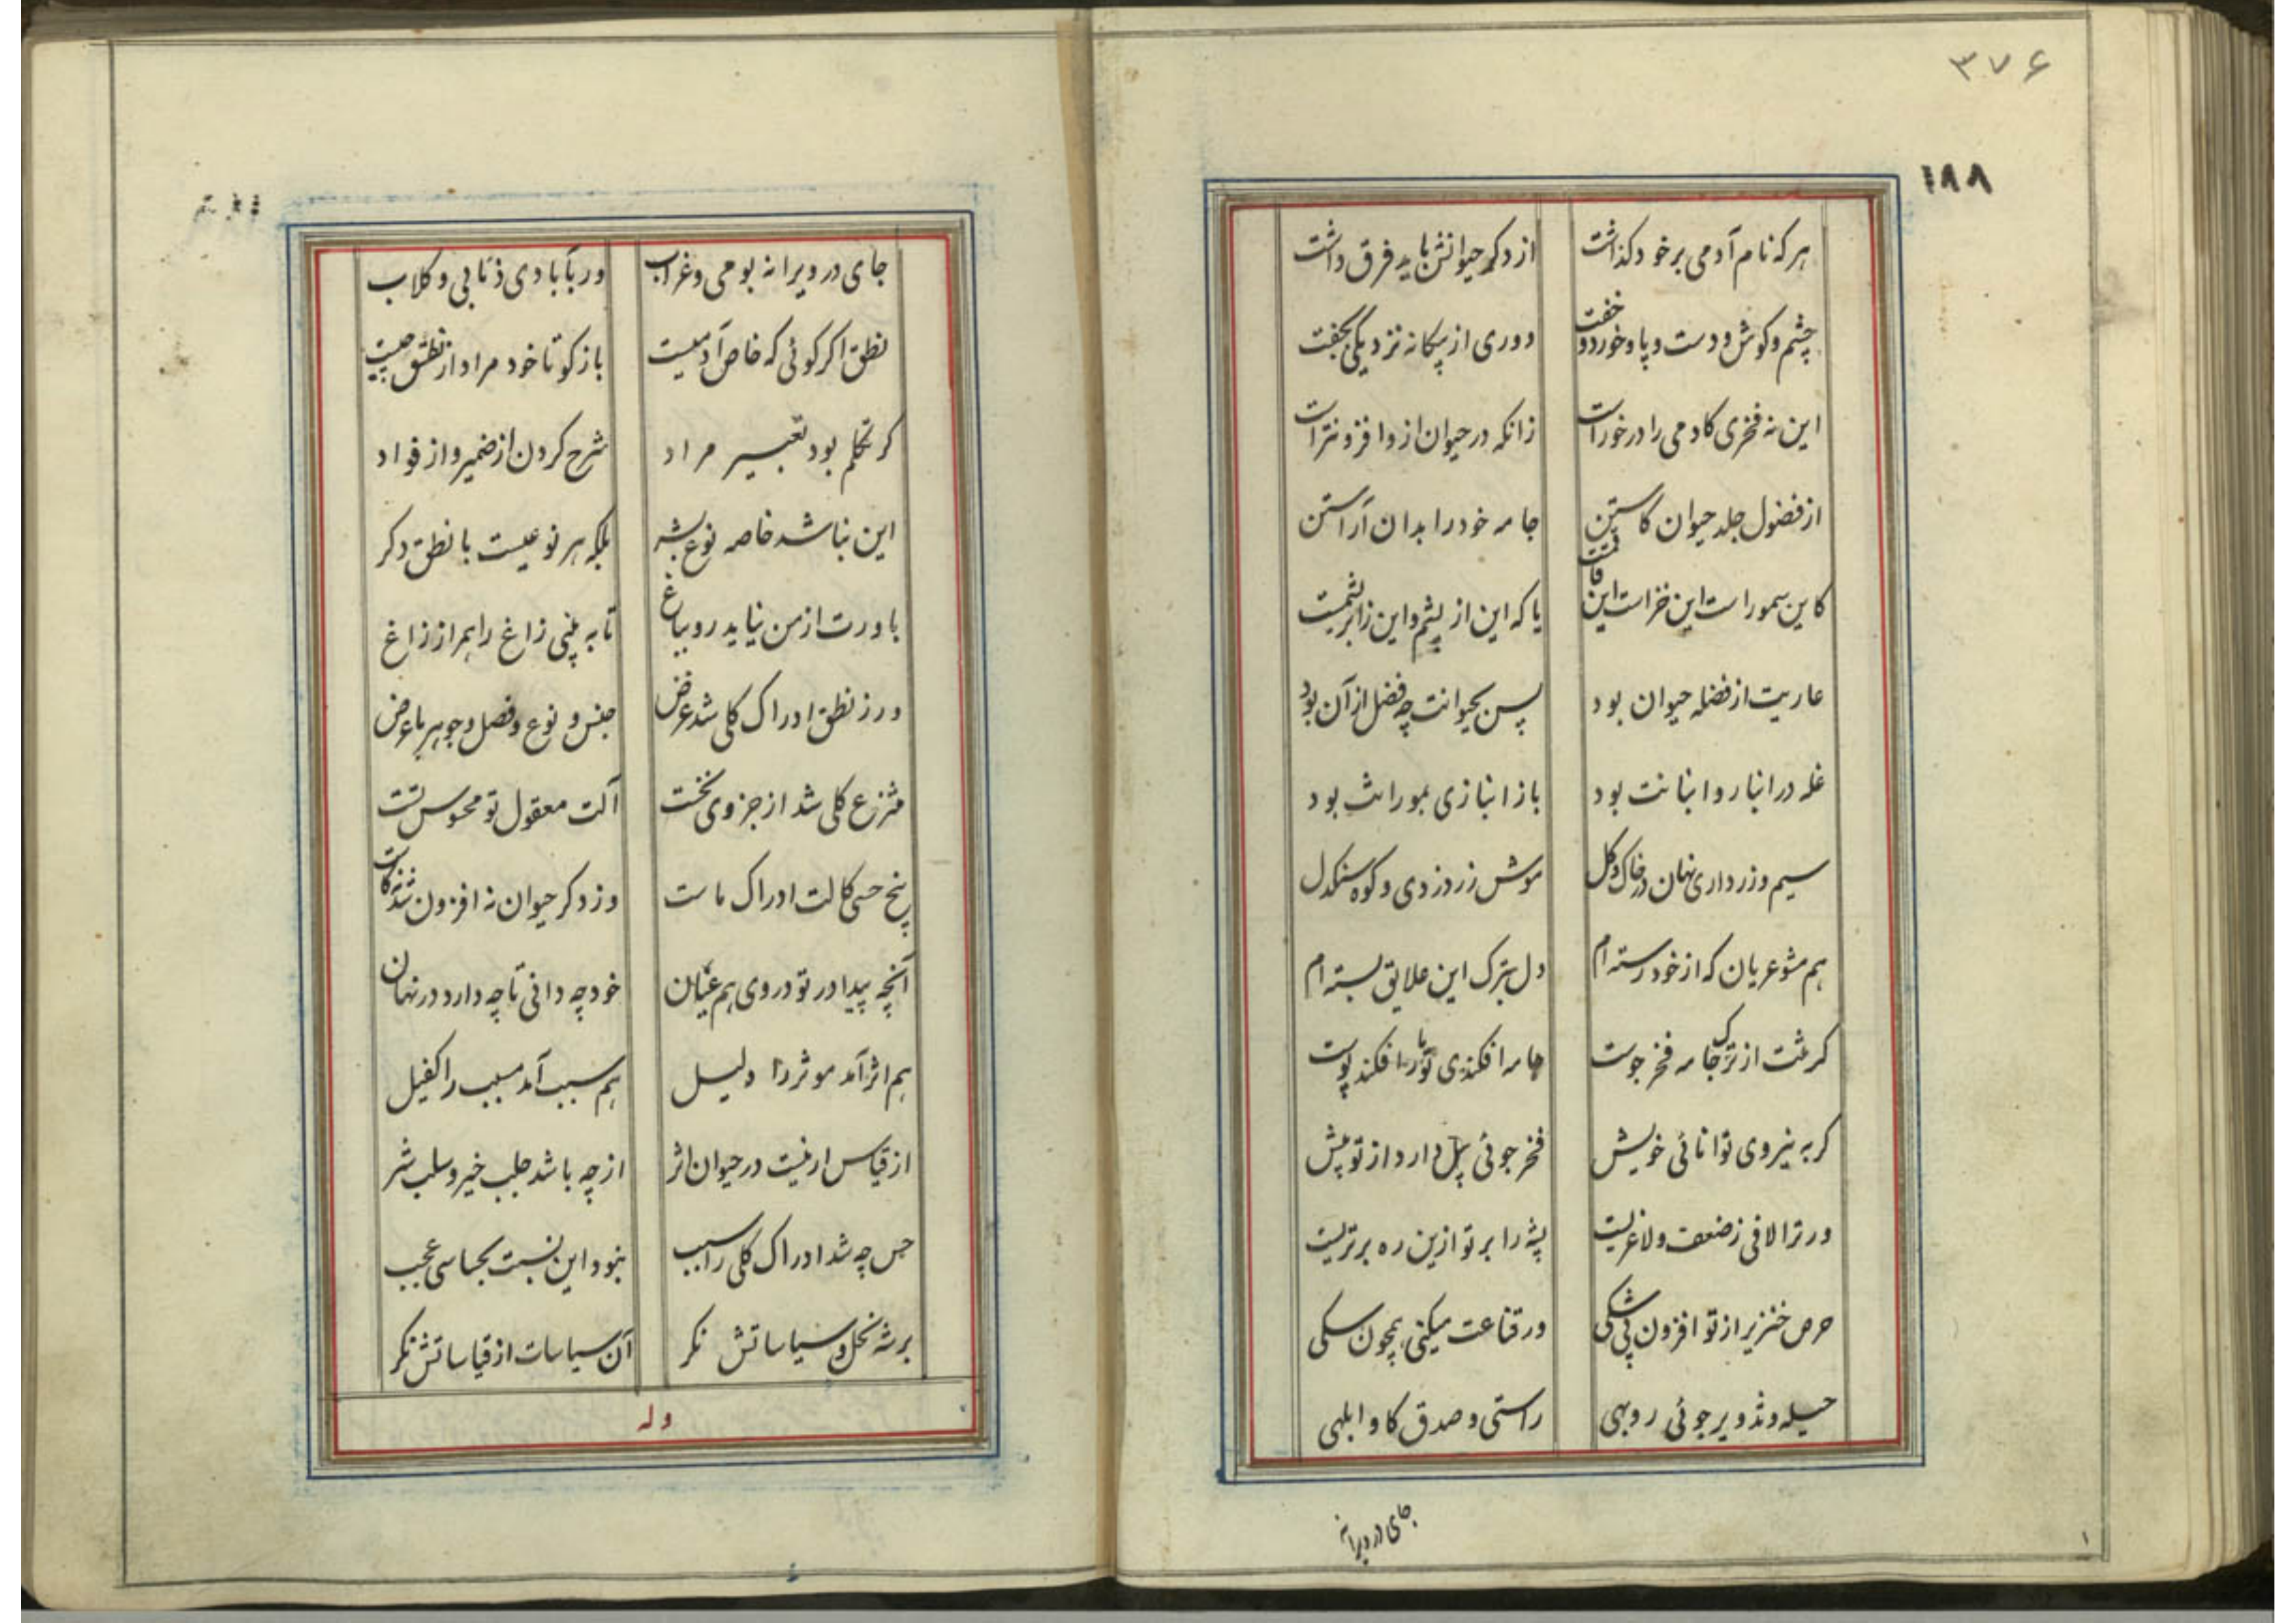 ۳۷۶
۱۸۸
هر که نام آدمی بر خود گذاشت از دگر حیوانش باید فرق داشت
چشم و گوش و دست و پا و خورد و خفت دوری از بیگانه نزدیکی بجفت
این نه فخری کادمی را در خوراست زانکه در حیوان ازو افزونتر است
از فضول جلد حیوان کاستن جامه خود را بدان آراستن
کاین سمور است این خز است این یا که این از پشم و این
عاریت از فضله حیوان بود پس بحیوانت چه فضل از آن بود
غله در انبار و انبانت بود باز انبازی بمورانت بود
سیم و زر داری نهان در خاک و گل موش زر دزدی و کوه سنگدل
هم مشو عریان که از خود رسته‌ام دل بترک این علایق بسته‌ام
گر منت از ترک جامه فخر جوست جامه افکندی تو مار افکند پوست
گر به نیروی توانائی خویش فخر جوئی پیل دارد از تو پیش
ور ترا لافی ز ضعف و لاغریست پشه را بر تو ازین ره برتریست
حرص خنزیر از تو افزون بی شکی ور قناعت میکنی همچون سگی
حیله و تذویر جوئی روبهی راستی و صدق گاو ابلهی
جای در ویرانه
جای در ویرانه بومی و غراب ور بآبادی ذئابی و کلاب
نطق اگر گوئی که خاص آدمیست باز گو تا خود مراد از نطق چیست
گر تکلم بود تعبیر مراد شرح کردن از ضمیر و از فواد
این نباشد خاصه نوع بشر بلکه هر نوعیست با نطق دگر
باورت از من نیاید رو بباغ تا به بینی زاغ را همراز زاغ
ور ز نطق ادراک کلی شد غرض جنس و نوع و فصل و جوهر یا عرض
منتزع کلی شد از جزوی نخست آلت معقول تو محسوس تست
پنج حسی کالت ادراک ماست وز دگر حیوان نه افزون شد نه کاست
آنچه پیدا در تو در وی هم عیان خود چه دانی تا چه دارد در نهان
هم اثر آمد موثر را دلیل هم سبب آمد مسبب را کفیل
از قیاس ار نیست در حیوان اثر از چه باشد جلب خیر و سلب شر
حس چه شد ادراک کلی را سبب نبود این نسبت بحساسی عجب
بر شه نحل و سیاساتش نگر آن سیاسات از قیاساتش نگر
وله